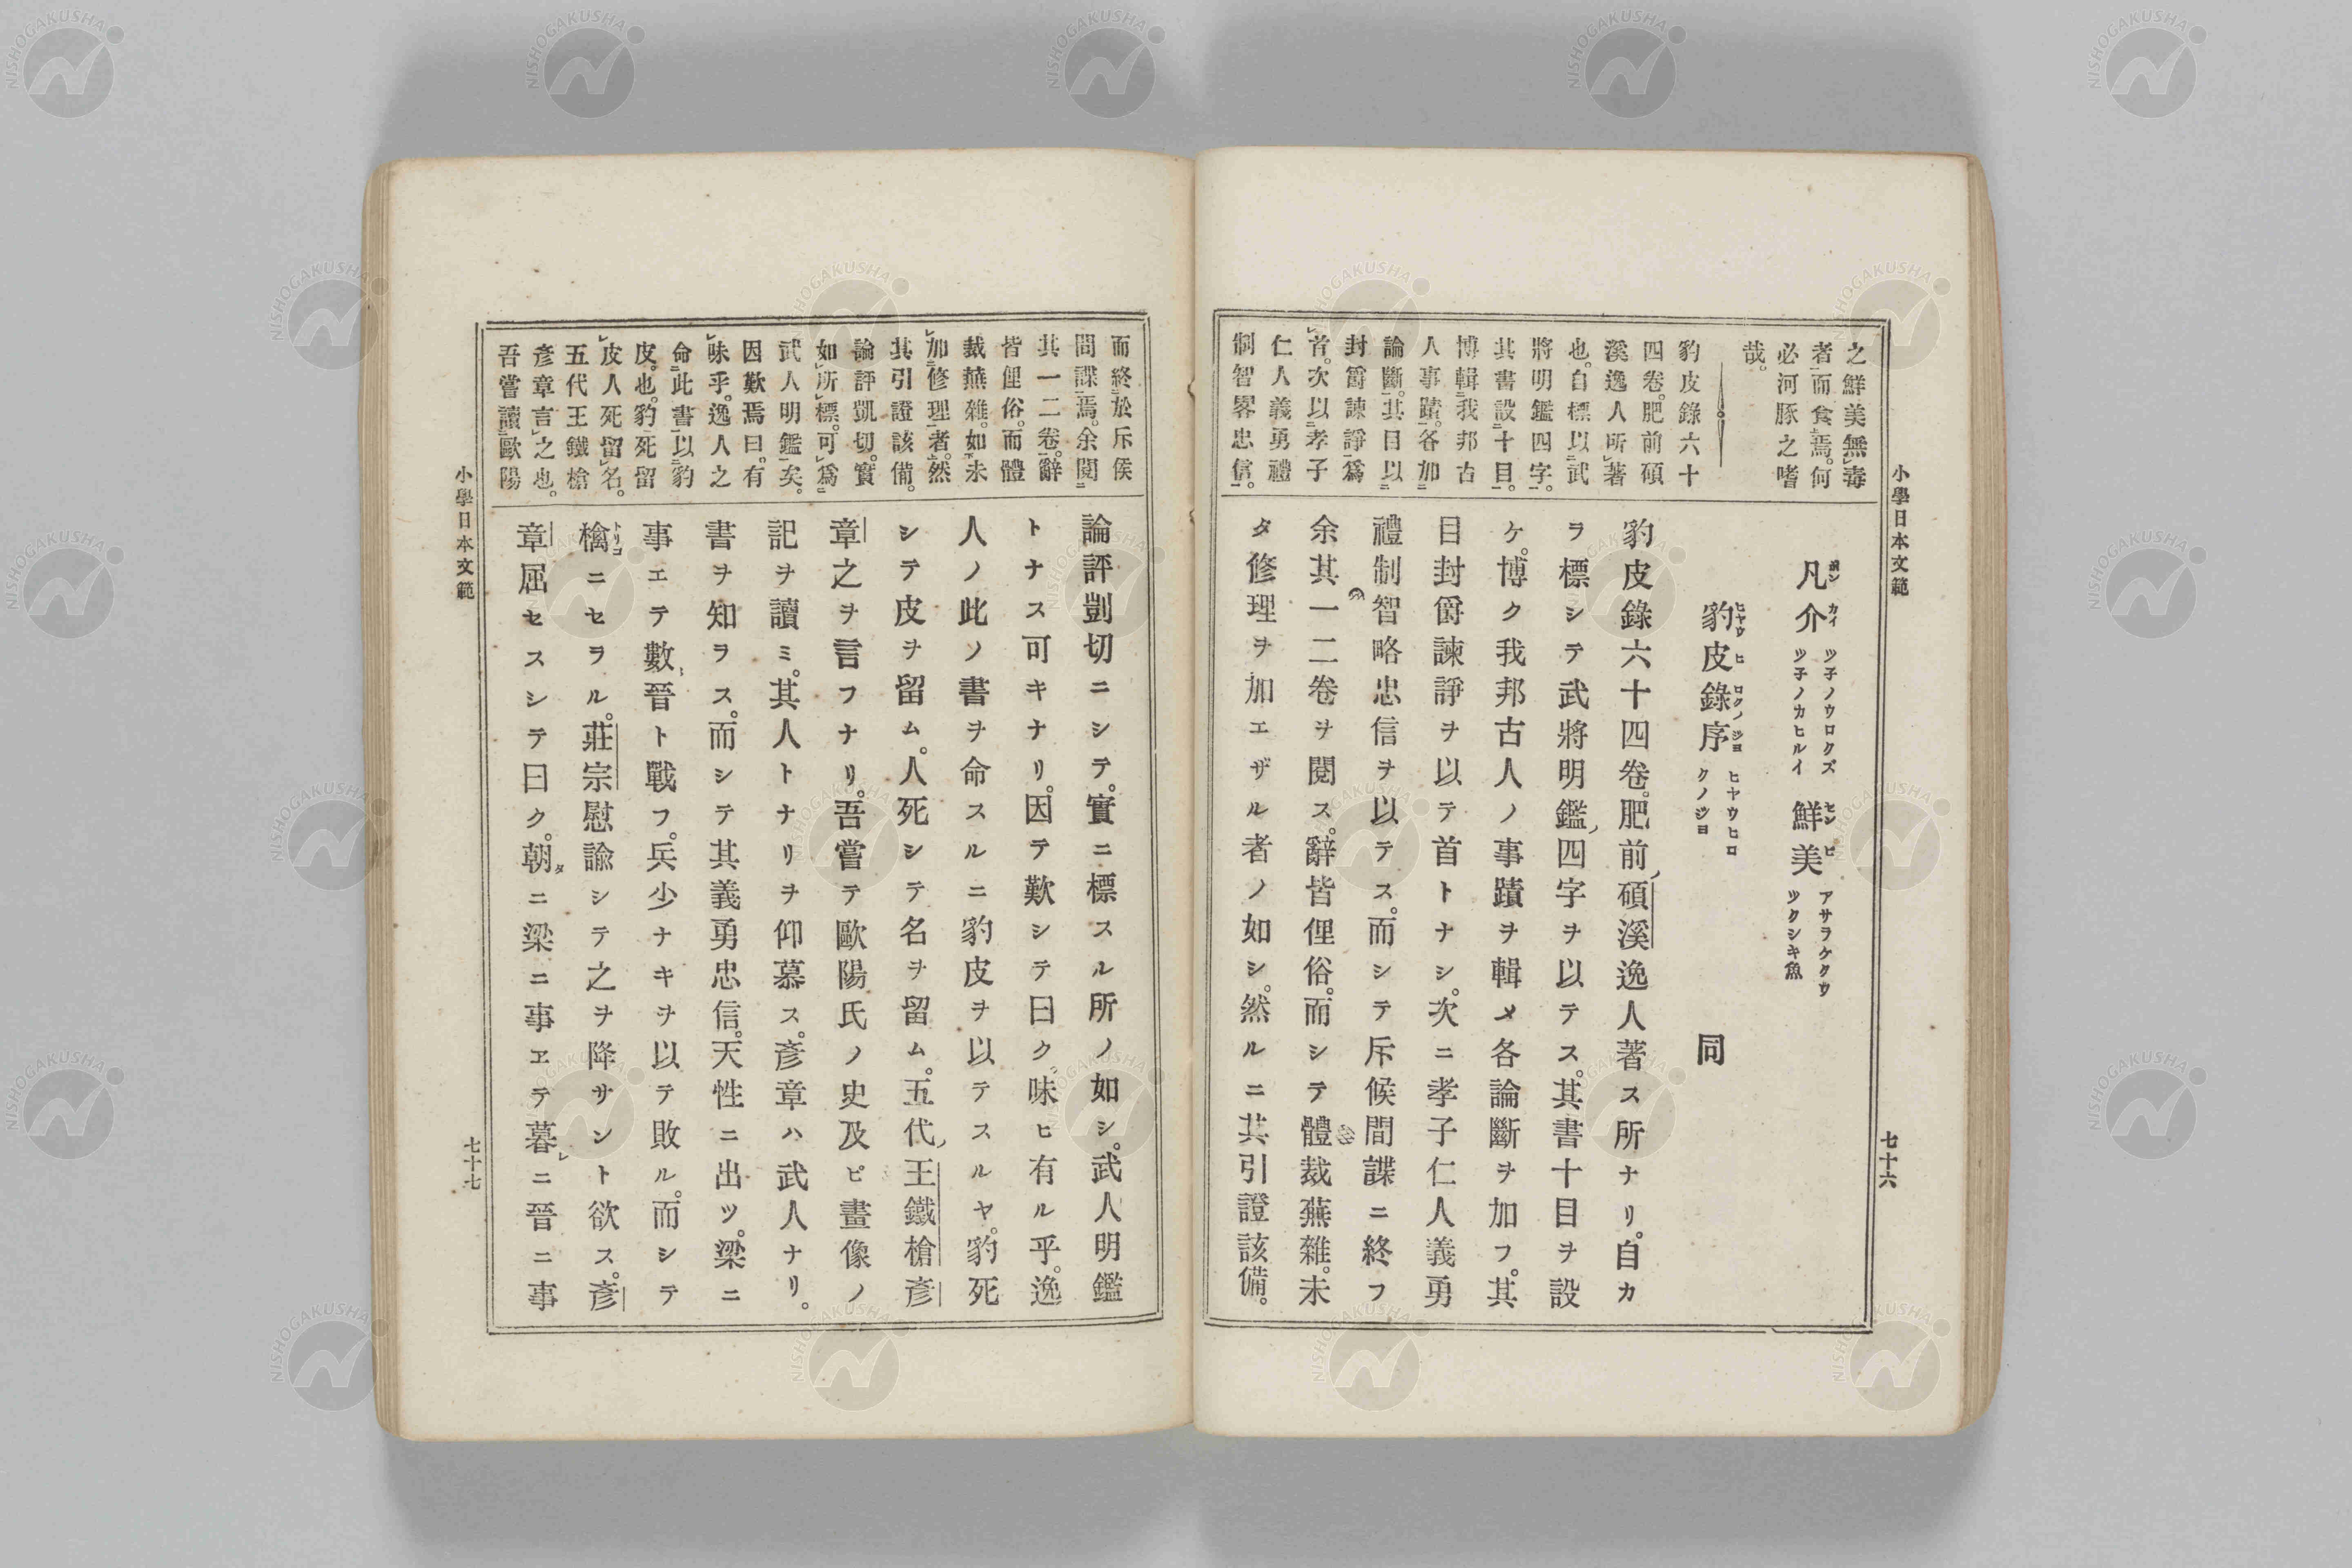 小學日本文範
七十六
之鮮美無毒
者而食焉。何
必河豚之嗜
哉。
豹皮錄六十
四卷。肥前碩
溪逸人所著
也。自標以武
將明鑑四字。
其書設十目。
博輯我邦古
人事蹟。各加
論斷。其目以
封爵諫諍爲
首。次以孝子
仁人義勇禮
制智畧忠信。
凡介 ツ子ノウロクズ ツ子ノカヒルイ 鮮美 アサラケクウツクシキ魚
豹皮錄序 ヒヤウヒロクノジヨ 同
豹皮錄六十四卷。肥前碩溪逸人著ス所ナリ。自カ
ヲ標シテ武將明鑑四字ヲ以テス。其書十目ヲ設
ケ。博ク我邦古人ノ事蹟ヲ輯メ各論斷ヲ加フ。其
目封爵諫諍ヲ以テ首トナシ。次ニ孝子仁人義勇
禮制智略忠信ヲ以テス。而シテ斥候間諜ニ終フ
余其一二卷ヲ閲ス。辭皆俚俗。而シテ體裁蕪雜。未
タ修理ヲ加エザル者ノ如シ。然ルニ其引證該備。
而終於斥侯
間諜焉。余閲
其一二卷。辭
皆俚俗。而體
裁蕪雜。如未
加修理者。然
其引證該備。
論評凱切。實
如所標。可爲
武人明鑑矣。
因歎焉曰。有
味乎。逸人之
命此書以豹
皮也。豹死留
皮人死留名。
五代王鐵槍
彥章言之也。
吾嘗讀歐陽
論評剴切ニシテ。實ニ標スル所ノ如シ。武人明鑑
トナス可キナリ。因テ歎シテ曰ク。味ヒ有ル乎。逸
人ノ此ノ書ヲ命スルニ豹皮ヲ以テスルヤ。豹死
シテ皮ヲ留ム。人死シテ名ヲ留ム。五代王鐵槍彥
章之ヲ言フナリ。吾嘗テ歐陽氏ノ史及ピ畫像ノ
記ヲ讀ミ。其人トナリヲ仰慕ス。彥章ハ武人ナリ。
書ヲ知ラス。而シテ其義勇忠信。天性ニ出ツ。梁ニ
事エテ數晉ト戰フ。兵少ナキヲ以テ敗ル。而シテ
檎ニセラル。莊宗慰諭シテ之ヲ降サント欲ス。彥
章屈セスシテ曰ク。朝ニ梁ニ事ヱテ暮ニ晉ニ事
小學日本文範
七十七